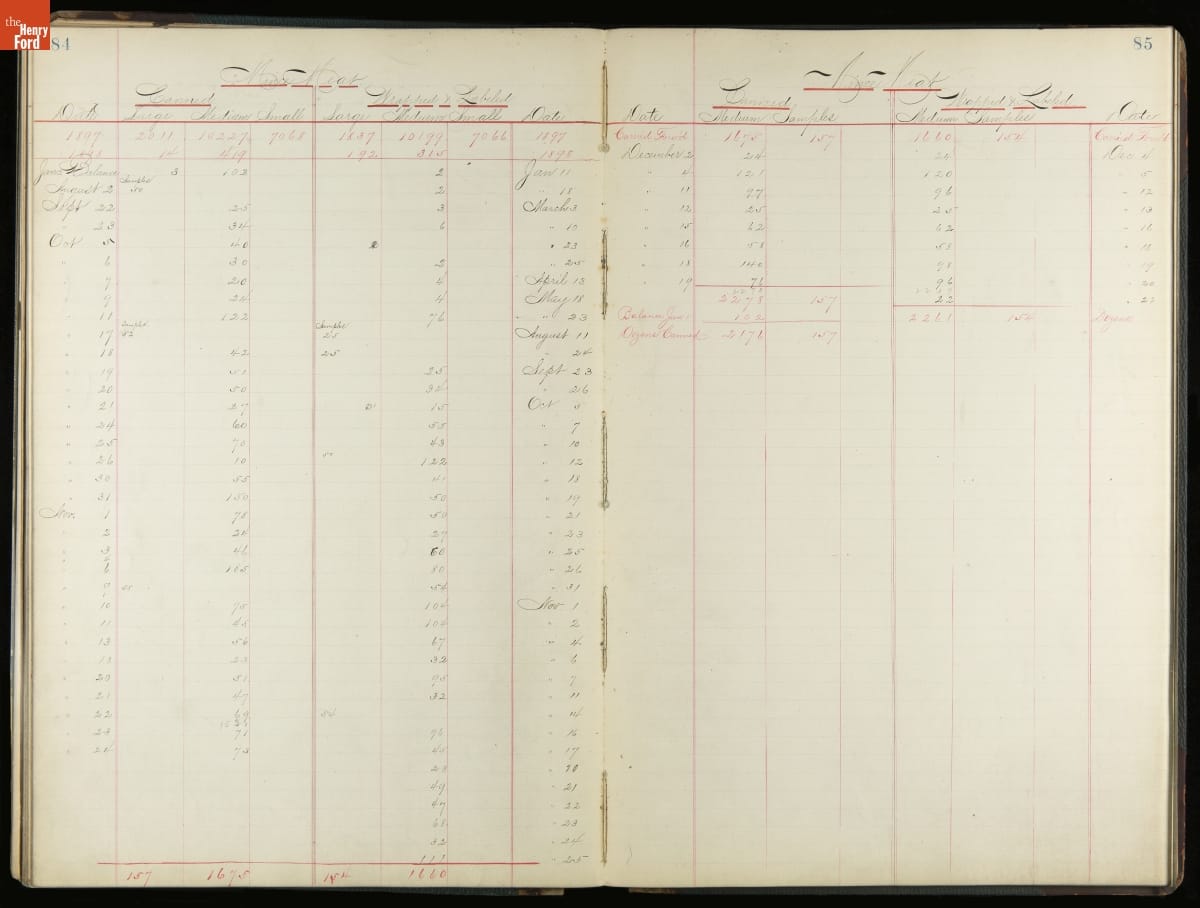 the
Henry
Ford
84
Mince Meat
Canned Wrapped & Labeled
Date Large Medium Small Large Medium Small Date
1897 2011 10227 7068 1837 10199 7066 1897
1898 14 419 192 315 1898
Jan 3 Balance 3 103 2 Jan 11
August 2 Samples 2 " 18
Sept 22 25 3 March 3
" 23 34 6 " 10
Oct 5 40 " 23
" 6 30 2 " 25
" 7 20 4 April 13
" 9 24 4 May 18
" 11 122 76 " 23
" 17 Samples 52 Samples 25 August 11
" 18 42 25 " 24
" 19 51 25 Sept 23
" 20 50 34 " 26
" 21 27 15 Oct 5
" 24 60 55 " 7
" 25 70 43 " 10
" 26 10 122 " 12
" 30 55 41 " 18
" 31 150 50 " 19
Nov. 1 78 50 " 21
" 2 24 27 " 23
" 3 46 60 " 25
" 6 105 80 " 26
" 9 54 " 31
" 10 75 104 Nov 1
" 11 45 104 " 2
" 13 56 67 " 4
" 18 23 32 " 6
" 20 51 95 " 7
" 21 47 32 " 11
" 22 69 54 " 14
" 23 71 96 " 16
" 24 73 45 " 17
28 " 20
49 " 21
47 " 22
68 " 23
32 " 24
111 " 25
157 1675 154 1660
85
Mince Meat
Canned Wrapped & Labeled
Date Medium Samples Medium Samples Date
Carried Forw'd 1675 157 1660 154 Carried Forw'd
December 2 24 24 Dec 4
" 4 121 120 " 5
" 11 97 96 " 12
" 12 25 25 " 13
" 15 62 62 " 16
" 16 58 58 " 18
" 18 140 98 " 19
" 19 76 96 " 20
2278 157 22 " 22
Balance Jan 1 102 2261 154 Dozens
Dozens Canned 2176 157